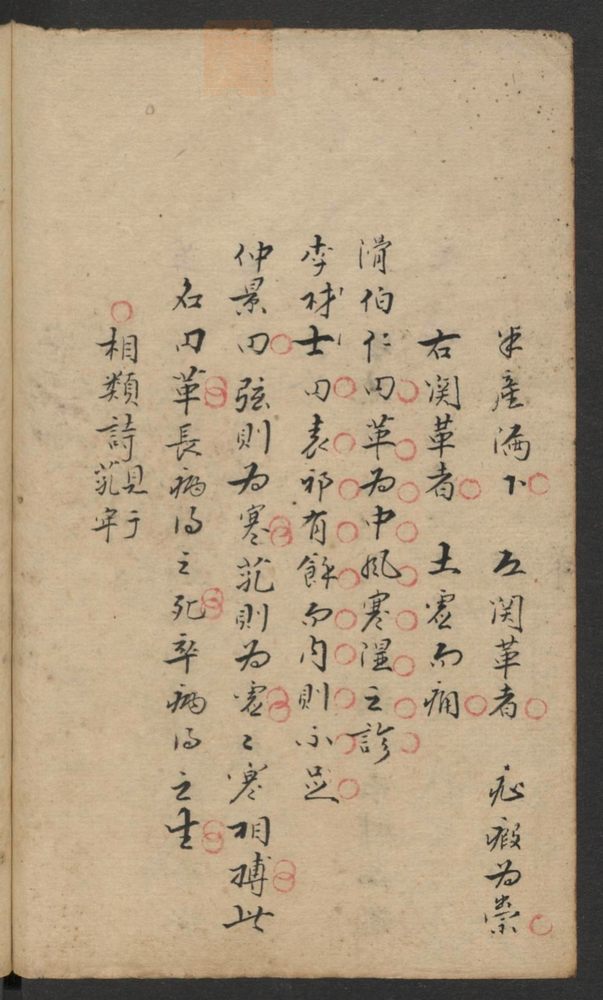 半産漏下 左関革者 疝瘕為祟
右関革者 土虚而痛
滑伯仁曰革為中風寒湿之診
李材士曰表邪有餘而内則不足
仲景曰弦則為寒芤則為虚々寒相搏此
名曰革長病得之死卒病得之生
相類詩見于芤牢